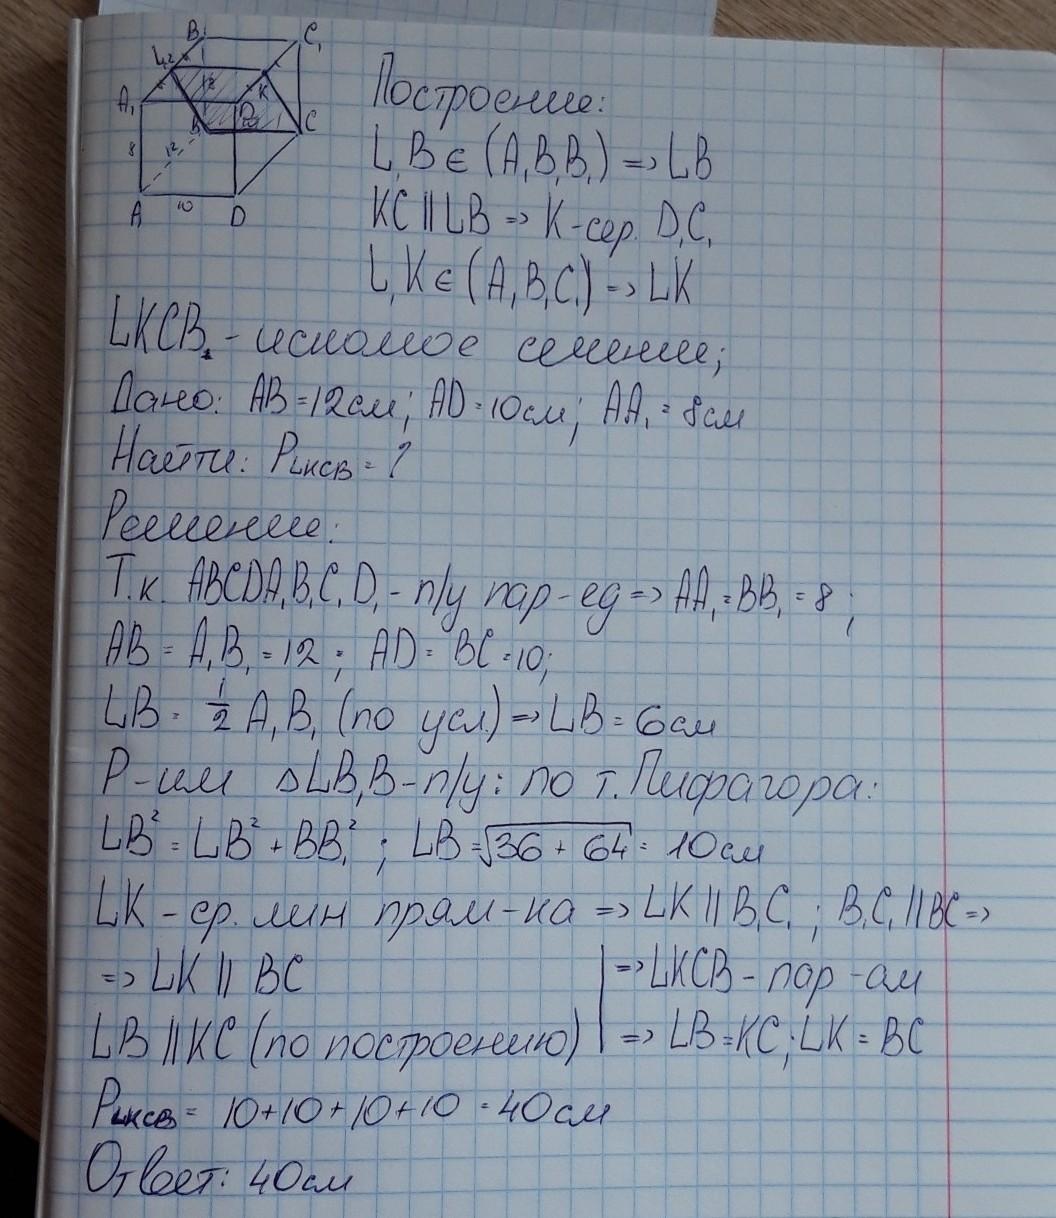 B₁ C₁
L
A₁ 12 K D₁
B C
8 12
A 10 D
Построение:
L, B ∈ (A₁B₁B₁) => LB
KC || LB => K-сер. D₁C₁
L, K ∈ (A₁B₁C₁) => LK
LKCB - искомое сечение;
Дано: AB = 12см; AD = 10см; AA₁ = 8см
Найти: PLKCB = ?
Решение:
Т.к. ABCDA₁B₁C₁D₁ - п/у пар-ед => AA₁ = BB₁ = 8;
AB = A₁B₁ = 12; AD = BC = 10;
LB = 1/2 A₁B₁ (по усл.) => LB = 6см
Р-им ΔLB₁B - п/у: по т. Пифагора:
LB² = LB² + BB₁²; LB = √36 + 64 = 10см
LK - ср. лин прям-ка => LK || B₁C₁; B₁C₁ || BC =>
=> LK || BC => LKCB - пар-ам
LB || KC (по построению) => LB = KC; LK = BC
PLKCB = 10+10+10+10 = 40см
Ответ: 40см